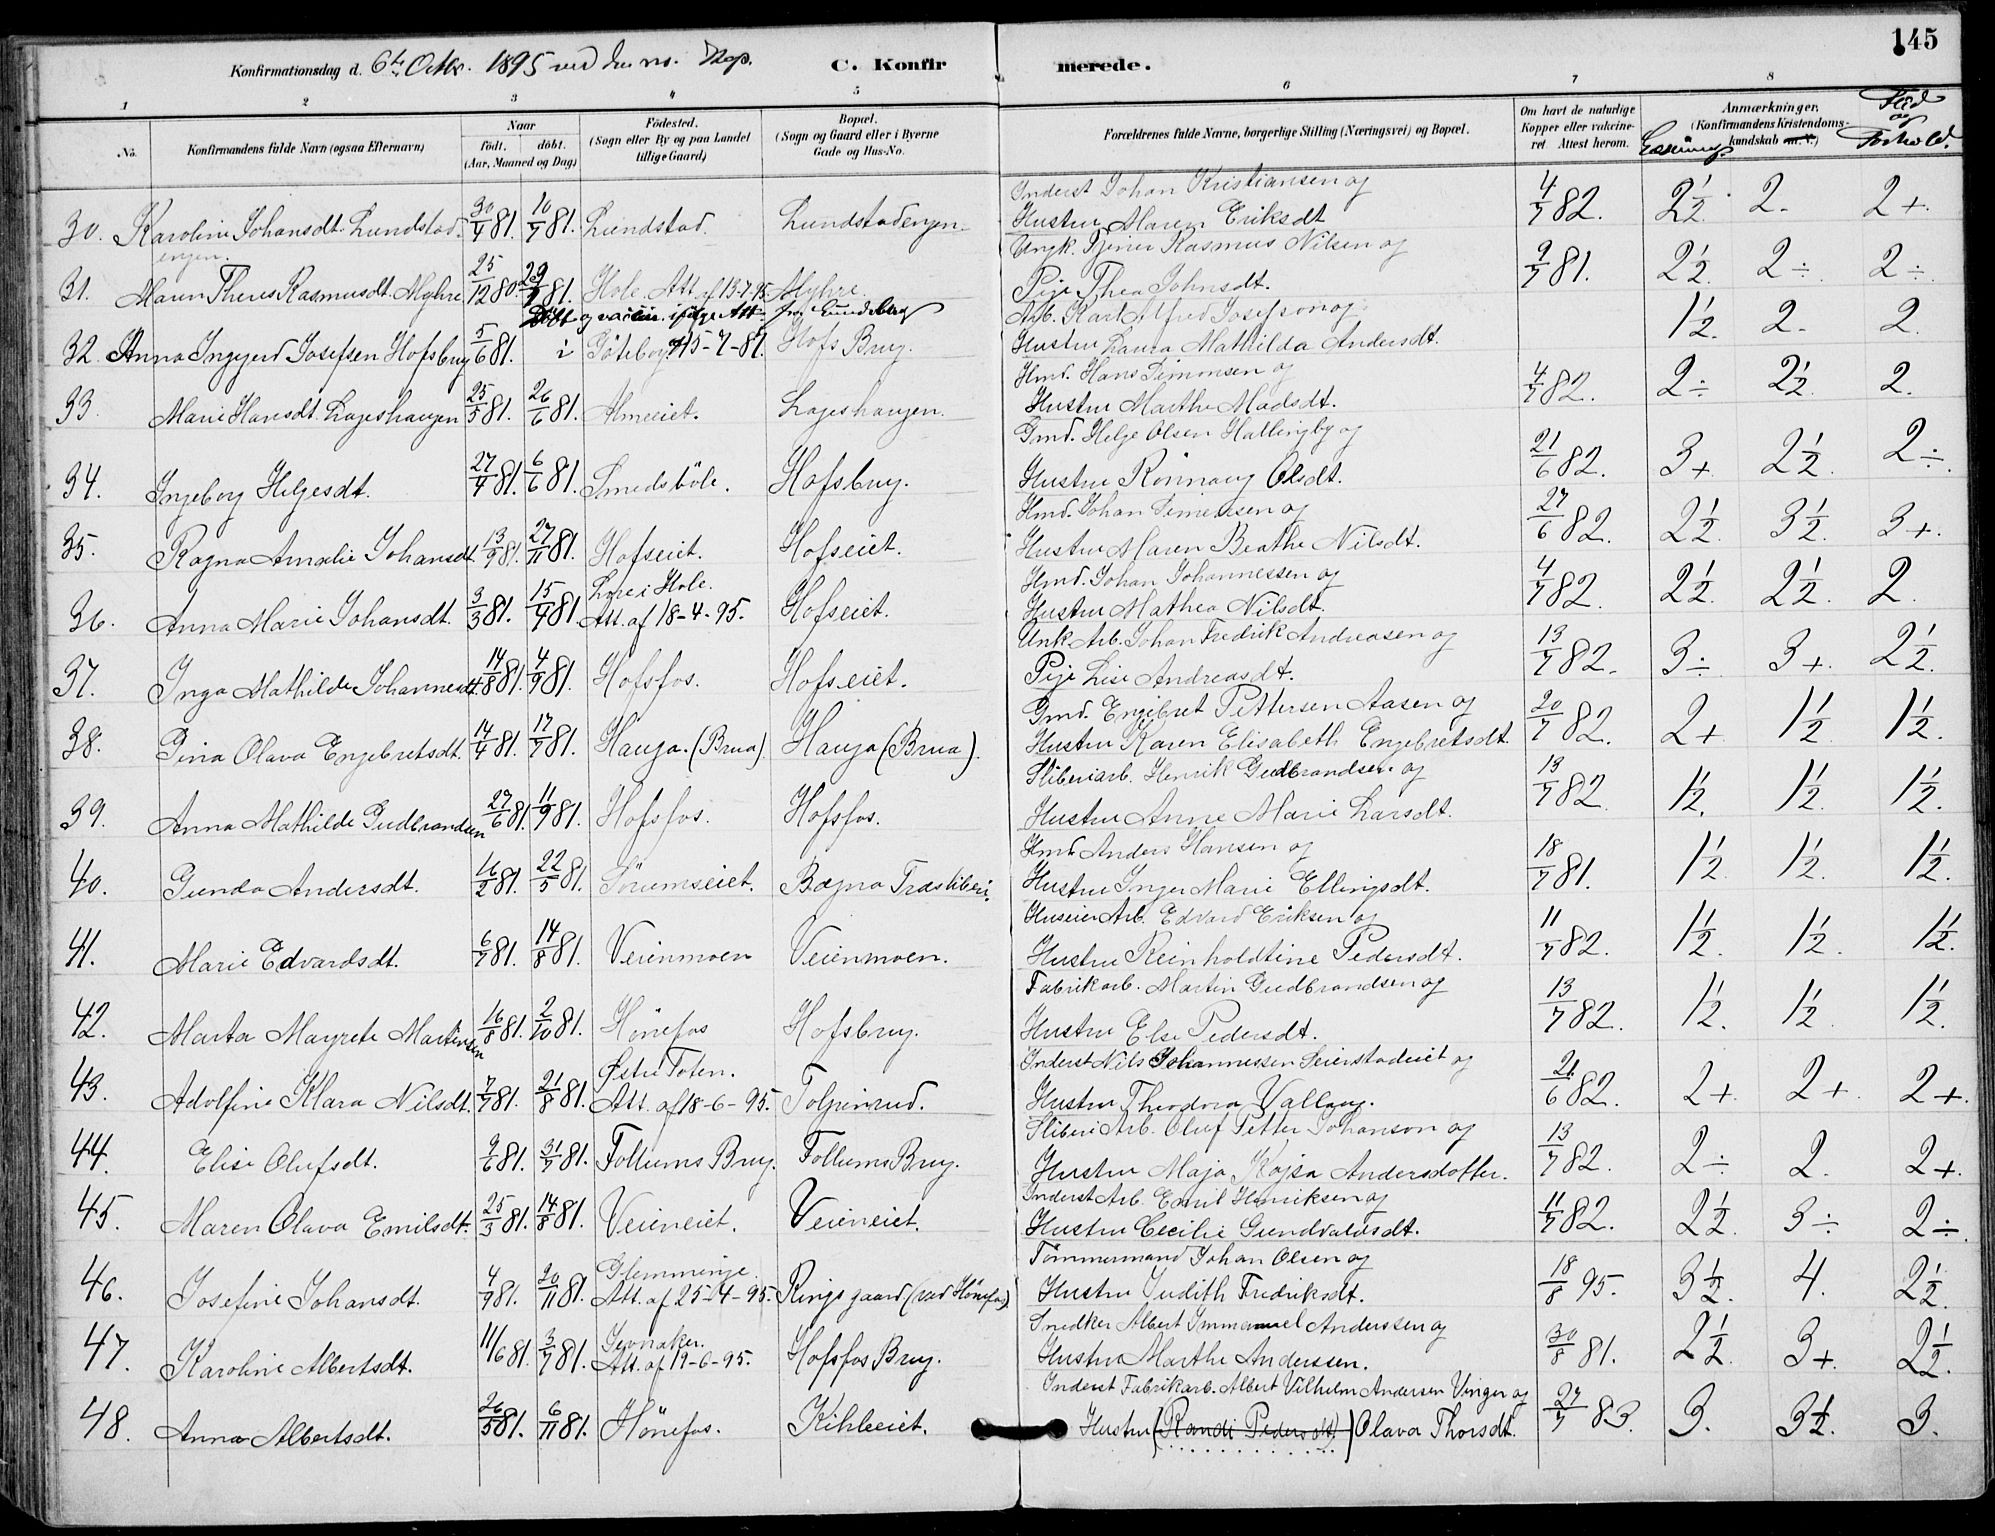 145
Konfirmationsdag d. 6te Octbr. 1895 ved res. Kap. C. Konfirmerede.
1 2 3 4 5 6 7 8
No. Konfirmandens fulde Navn (ogsaa Efternavn) Naar født. døbt. (Aar, Maaned og Dag) Fødested. (Sogn eller By og paa Landet tillige Gaard) Bopæl. (Sogn og Gaard eller i Byerne Gade og Hus-No. Forældrenes fulde Navne, borgerlige Stilling (Næringsvei) og Bopæl. Om havt de naturlige Kopper eller vakcineret. Attest herom. Anmærkninger. (Konfirmandens Kristendomskundskab m. v.) Læsning. Flid og Forhold.
30. Karoline Johansdt. Lundstadengen. 30/4 81. 10/7 81. Lundstad. Lundstadengen. Inderst Johan Kristiansen og
Hustru Maren Eriksdt 4/7 82. 2 1/2. 2. 2+.
31. Maren Thereso Rasmusdt. Myhre 25/12 80. 29/ 81. Hole. Att. af 13-7-95. Myhre. Ungk. Tjener Rasmus Nilsen og
Pige Thea Johnsdt. 9/7 81. 2 1/2. 2÷ 2÷.
Døbt og vaccin. ifølge Att. fra Gundeberg
32. Anna Ingegerd Josefsen Hofsbrug 5/6 81. i Göteborg 15-7-81. Hofs Brug. Arb. Karl Alfred Josefson og
Hustru Laura Mathilda Andersdt. 1 1/2. 2. 2.
33. Marie Hansdt. Lageshaugen 25/5 81. 26/6 81. Almeeiet. Lageshaugen. Hmd. Hans Simonsen og
Hustru Marthe Madsdt. 4/7 82. 2÷ 2 1/2. 2.
34. Ingeborg Helgesdt. 27/4 81. 6/6 81. Smedsböle. Hofsbrug. Gmd. Helge Olsen Hallingby og
Hustru Rönnaug Olsdt. 21/6 82. 3+. 2 1/2. 2÷.
35. Ragna Amalie Johansdt. 13/9 81. 27/11 81. Hofseiet. Hofseiet. Hmd. Johan Simensen og
Hustru Maren Beathe Nilsdt. 27/6 82. 2 1/2. 3 1/2. 3+.
36. Anna Marie Johansdt. 3/3 81. 15/4 81. Lore i Hole.
Att. af 18-4-95. Hofseiet. Hmd. Johan Johannessen og
Hustru Mathea Nilsdt. 4/7 82. 2 1/2. 2 1/2. 2.
37. Inga Mathilde Johannesdt. 14/8 81. 4/9 81. Hofsfos. Hofseiet. Unk. Arb. Johan Fredrik Andreasen og
Pige Lise Andreasdt. 13/7 82. 3÷ 3+. 2 1/2.
38. Gina Olava Engebretsdt. 14/4 81. 17/7 81. Hauga. (Brua). Hauga (Brua). Gmd. Engebret Pettersen Aasen og
Hustru Karen Elisabeth Engebretsdt. 20/7 82. 2+ 1 1/2. 1 1/2.
39. Anna Mathilde Gudbrandsen 27/6 81. 11/9 81. Hofsfos. Hofsfos. Sliberiarb. Henrik Gudbrandsen og
Hustru Anne Marie Larsdt. 13/7 82. 1 1/2. 1 1/2. 1 1/2.
40. Gunda Andersdt. 16/2 81. 22/5 81. Sörumseiet. Bægna Træsliberi. Hmd. Anders Hansen og
Hustru Inger Marie Ellingsdt. 18/7 81. 1 1/2. 1 1/2. 1 1/2.
41. Marie Edvardsdt. 6/7 81. 14/8 81. Veienmoen Veienmoen. Huseier Arb. Edvard Eriksen og
Hustru Reinholdtine Pedersdt. 11/7 82. 1 1/2. 1 1/2. 1 1/2.
42. Marta Magrete Martinsen 16/8 81. 2/10 81. Hönefos Hofsbrug. Fabrikarb. Martin Gudbrandsen og
Hustru Else Pedersdt. 13/7 82. 1 1/2. 1 1/2. 1 1/2.
43. Adolfine Klara Nilsdt. 7/7 81. 21/8 81. Østre Toten.
Att. af 18-6-95. Tolpinrud. Inderst Nils Johannessen Seierstadeiet og
Hustru Theodora Vallaug. 21/6 82. 2+. 2+. 2+.
44. Elise Olufsdt. 9/6 81. 31/7 81. Follums Brug. Follums Brug. Sliberi Arb. Oluf Petter Johanson og
Hustru Maja Kajsa Andersdotter. 13/7 82. 2÷ 2. 2+.
45. Maren Olava Emilsdt. 25/3 81. 14/8 81. Veieneiet. Veieneiet. Inderst Arb. Emil Henriksen og
Hustru Cecilie Gundvaldsdt. 11/7 82. 2 1/2. 3÷ 2÷.
46. Josefine Johansdt. 4/9 81. 20/11 81. Glemminge.
Att. af 25-4-95. Ringsgaard (ved Hönefos) Tömmermand Johan Olsen og
Hustru Judith Fredriksdt. 18/8 95. 3 1/2. 4. 2 1/2.
47. Karoline Albertsdt. 11/6 81. 3/7 81. Jevnaker.
Att. af 19-6-95. Hofsfos Brug. Snedker Albert Immanuel Anderssen og
Hustru Marthe Anderssen. 30/8 81. 2 1/2. 3+. 2 1/2.
48. Anna Albertsdt. 26/5 81. 6/11 81. Hönefos. Kihleeiet. Inderst Fabrikarb. Albert Vilhelm Andersen Vinger og
Hustru (Randi Pedersdt) Olava Thorsdt. 27/7 83. 3. 3 1/2. 3.